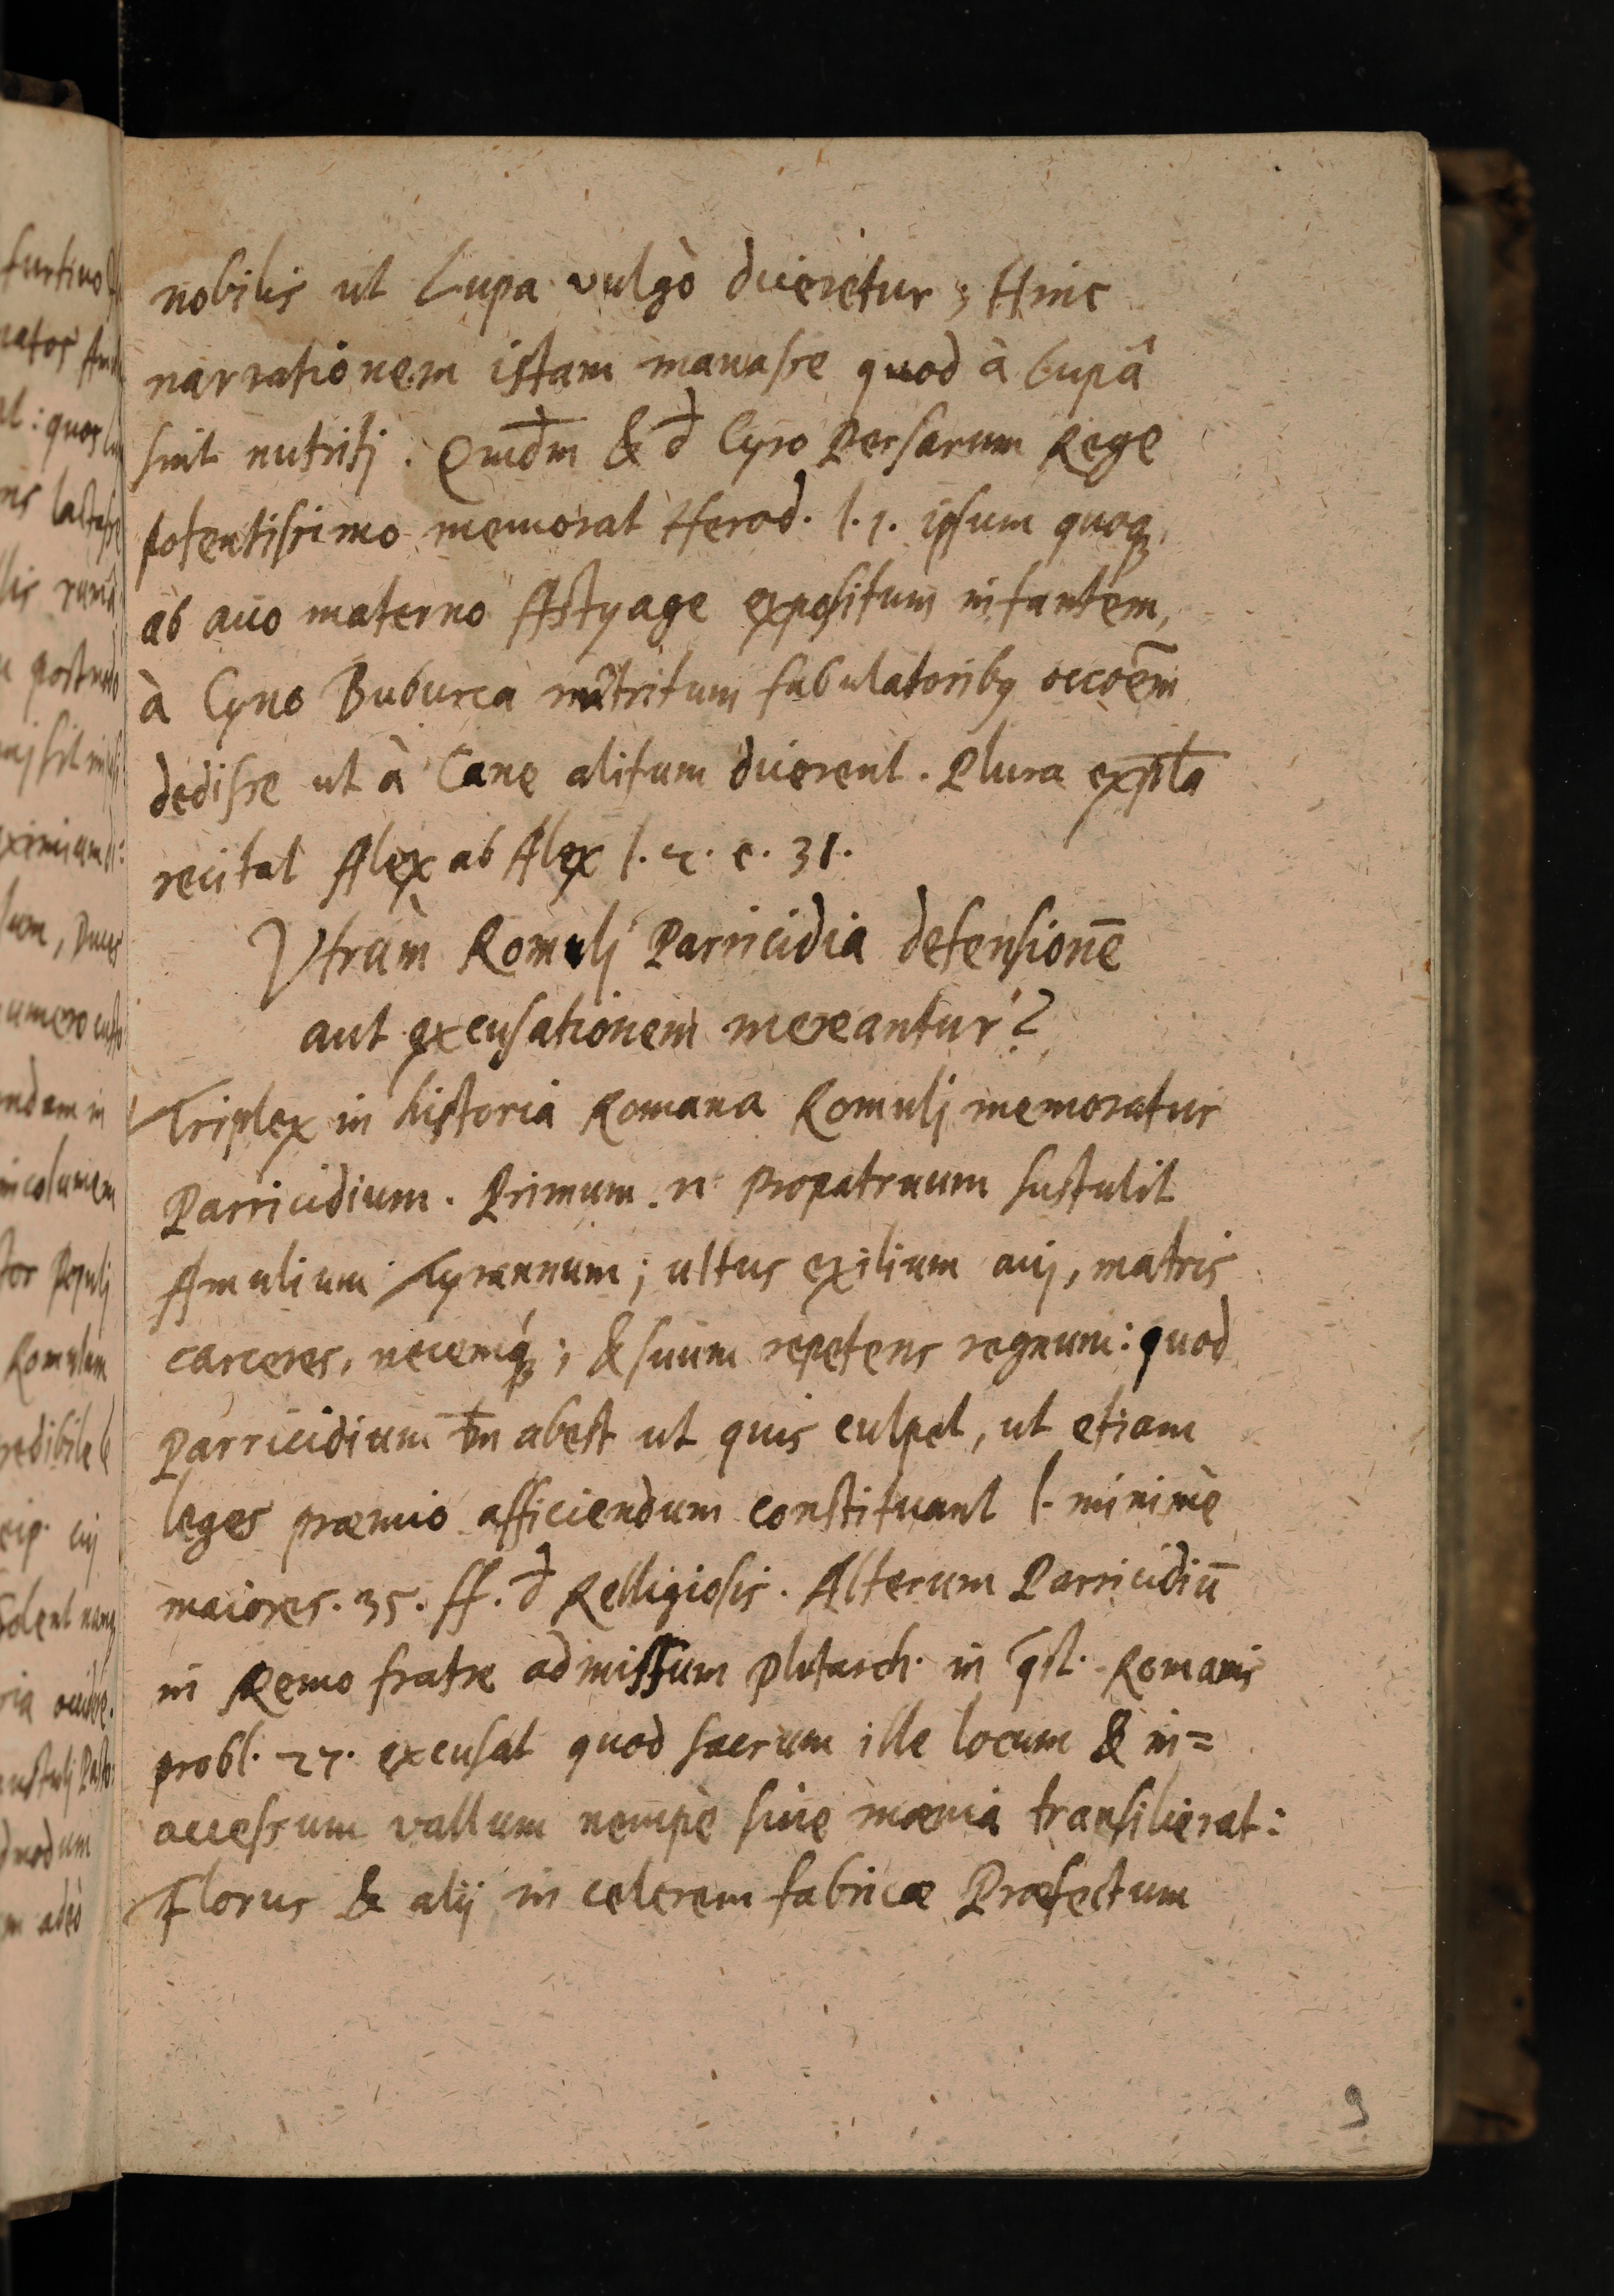 nobilis ut Lupa vulgò diceretur; Hinc
narrationem istam manasse quod à Lupâ
sint nutritj. Quid̄m & d̄ Cyro Persarum Rege
potentissimo memorat Herod. l. 1. ipsum quoq;
ab auo materno Astyage expositum infantem,
à Cyno Bubulca nutritum fabulatoribq occōem
dedisse ut à Cane alitum dicerent. Plura expl̄a
recitat Alex ab Alex l. 2. c. 31.
Vtrùm Romulj Parricidia defensionē
aut excusationem mereantur?
Triplex in historia Romana Romulj memoratur
Parricidium. Primum. n. Propatruum sustulit
Amulium Tyrannum; ultus exilium auj, matris
carceres, necemq́;; & suum repetens regnum: quod
Parricidium tm̄ abest ut quis culpet, ut etiam
leges præmio afficiendum constituant l. minimè
maiores. 35. ff. d̄ Relligiosis. Alterum Parricidiū
in Remo fratre admissum Plutarch. in q̄st. Romanis
probl. 27. excusat quod sacrum ille locum & in=
accessum vallum nempè siue mœnia transilierat:
Florus & alij in celerem fabricæ Præfectum
9